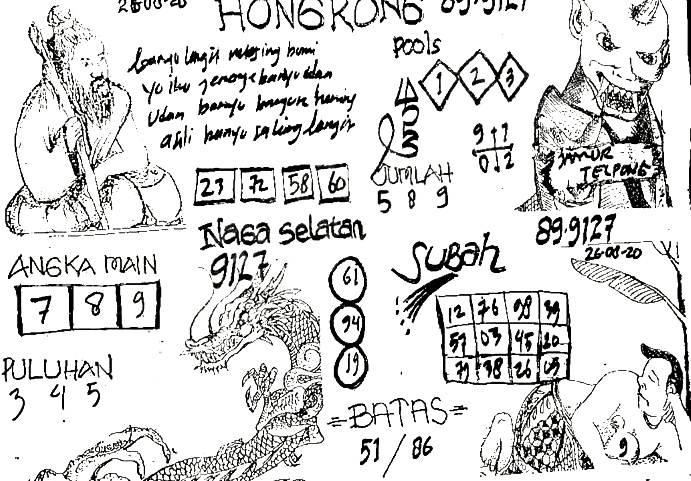 26-08-20
HONGKONG 89.9127
Pools
banyu langit
Yo iku
udan banyu
asli banyu saking langit
1 2 3
9 1 7
0 1 2
JUMLAH
5 8 9
JAMUR
TELPONG
23 72 58 60
Naga Selatan
9127
89.9127
26-08-20
SUBAH
ANGKA MAIN
7 8 9
61
94
19
12 76 98 89
51 03 45 20
79 38 26 05
PULUHAN
3 4 5
=BATAS=
51 / 86
9